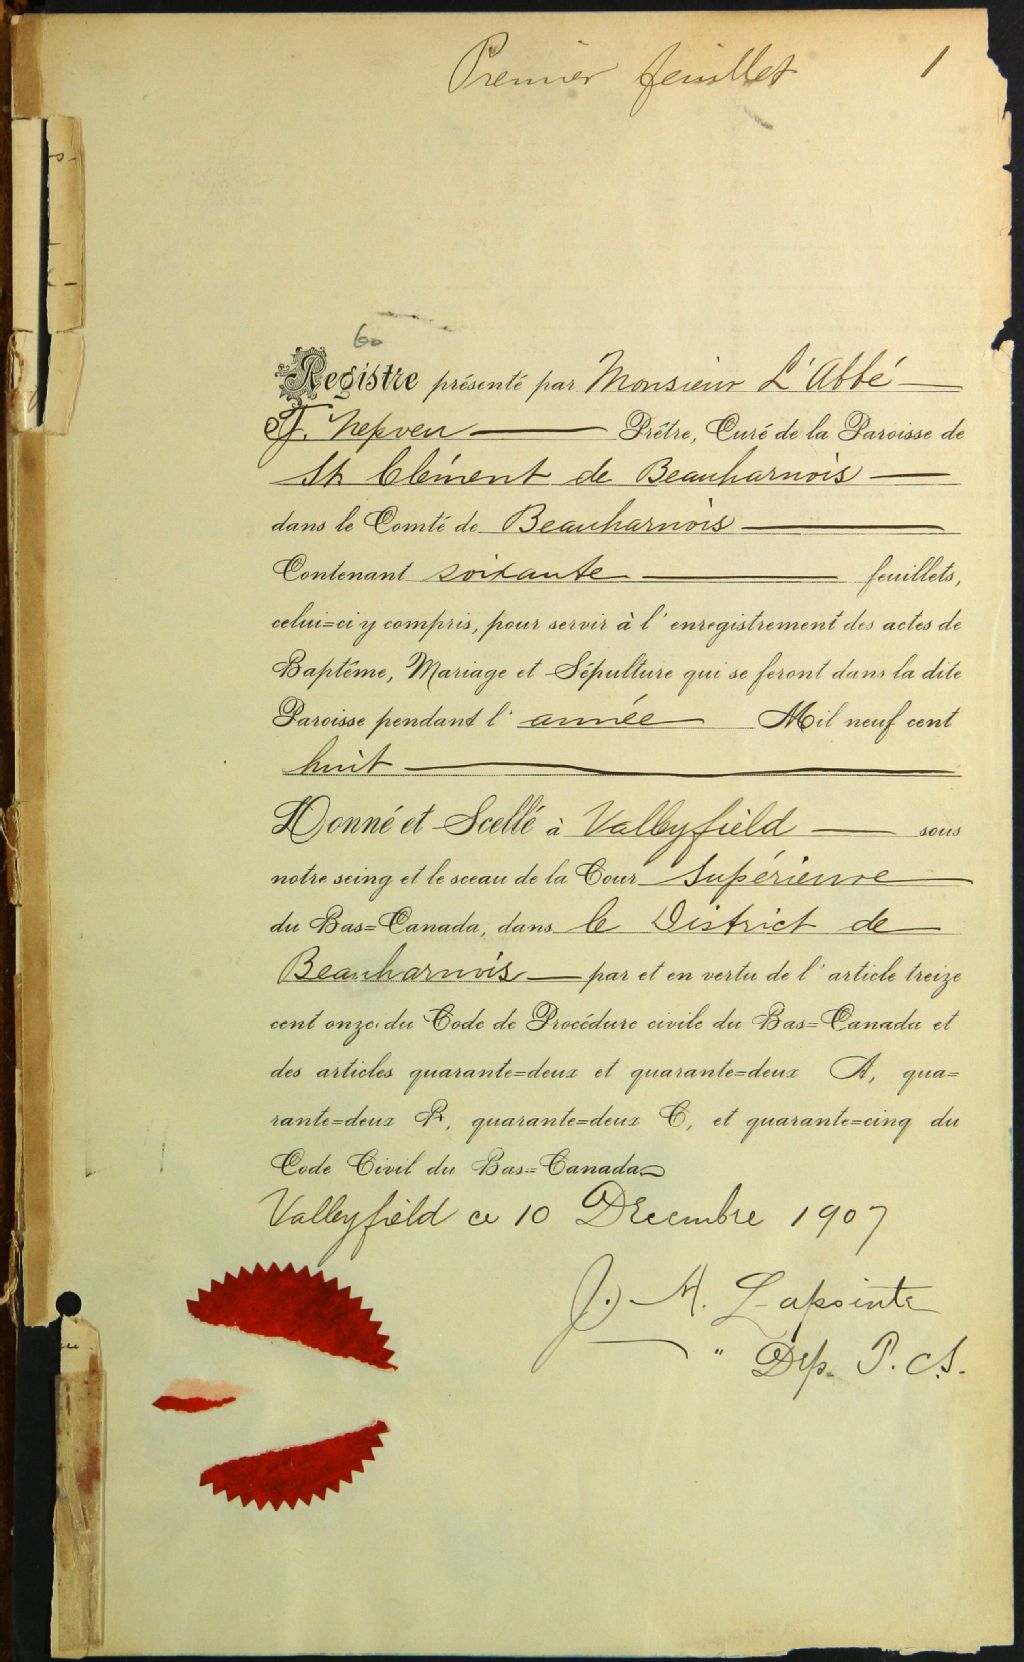 Premier feuillet 1
60
Registre présenté par Monsieur L'Abbé
F. Nepveu Prêtre, Curé de la Paroisse de
St Clément de Beauharnois
dans le Comté de Beauharnois
Contenant soixante feuillets,
celui=ci y compris, pour servir à l'enregistrement des actes de
Baptême, Mariage et Sépulture qui se feront dans la dite
Paroisse pendant l'année Mil neuf cent
huit
Donné et Scellé à Valleyfield sous
notre seing et le sceau de la Cour Supérieure
du Bas=Canada, dans le District de
Beauharnois par et en vertu de l'article treize
cent onze du Code de Procédure civile du Bas=Canada et
des articles quarante=deux et quarante=deux A, qua=
rante=deux B, quarante=deux C, et quarante=cinq du
Code Civil du Bas=Canada
Valleyfield ce 10 Décembre 1907
J. A. Lapointe
" Dep. P. C. S.